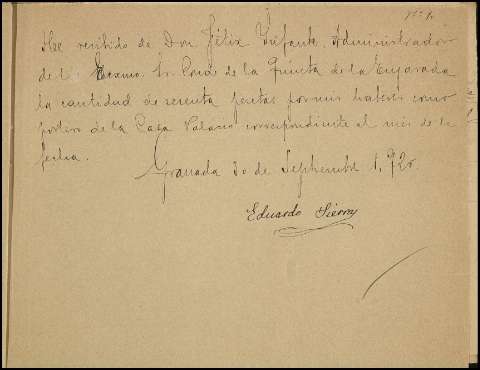 Nº 1.
He recibido de Don Félix Infante, Administrador
del Excmo. Sr. Conde de la Quinta de la Enjarada
la cantidad de sesenta pesetas por mis haberes como
portero de la Casa Palacio correspondiente al mes de la
fecha.
Granada 30 de Septiembre 1,920
Eduardo Sierra